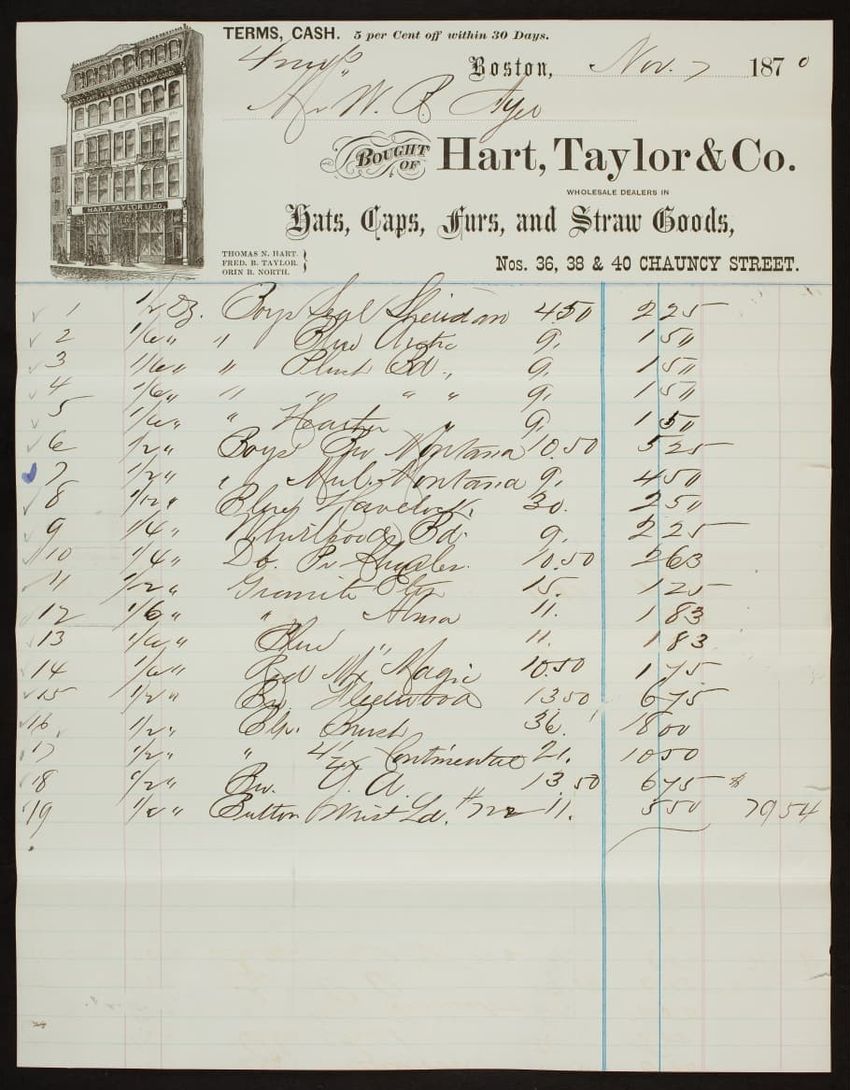 TERMS, CASH. 5 per Cent off within 30 Days.
4 mos
Boston, Nov. 7 1870
Mr W. R. Ayer
BOUGHT OF Hart, Taylor & Co.
WHOLESALE DEALERS IN
Hats, Caps, Furs, and Straw Goods,
THOMAS N. HART.
FRED. B. TAYLOR.
ORIN B. NORTH.
Nos. 36, 38 & 40 CHAUNCY STREET.
HART, TAYLOR & CO.
1 1/2 Dz. Boys Seal Sheridan 4.50 2 25
2 1/6 " " Blue Arctic 9. 1 50
3 1/6 " " Plush Bd. " 9. 1 50
4 1/6 " " " " " 9. 1 50
5 1/6 " " " 9. 1 50
6 1/2 " Boys Montana 10.50 5 25
7 1/2 " " Mul. Montana 9. 4 50
8 1/12 " Blue Havelock 30. 2 50
9 1/4 " Whirlpool Bd. 9. 2 25
10 1/4 " Do. 10.50 2 63
11 1/12 " Granite 15. 1 25
12 1/6 " " Alma 11. 1 83
13 1/6 " Blue " 11. 1 83
14 1/6 " Red Mx Magic 10.50 1 75
15 1/2 " Fleetwood 13.50 6 75
16 1/2 " Brush 36. 18 00
17 1/2 " " Continental 21. 10 50
18 1/2 " 13.50 6 75 $
19 1/2 " Button Wrist 11. 5 50 79 54